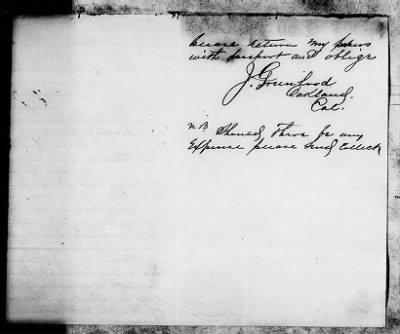 please return my papers
with passport and oblige
J. Greenhood
Oakland.
Cal.
N B Should there be any
Expense please send Collect